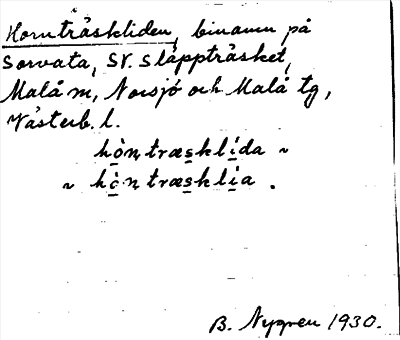 Hornträskliden, binamn på
Sorvata, SV. Släppträsket,
Malå m, Norsjö och Malå tg,
Västerb. l.
hòṇtræsklída ~
~ hòṇtræsklía .
B. Nygren 1930.